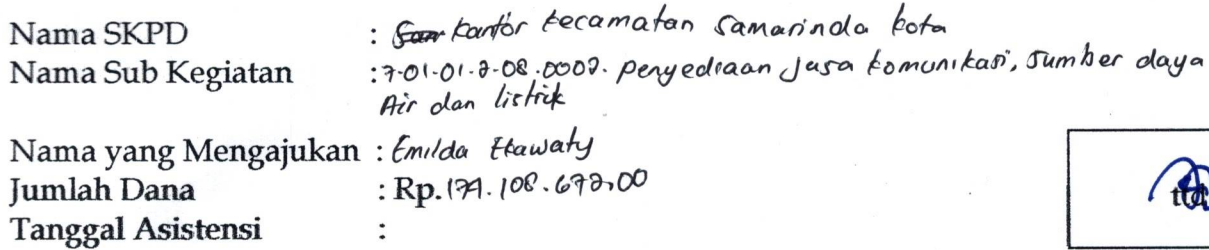 Nama SKPD : Kantor kecamatan Samarinda kota
Nama Sub Kegiatan : 7-01-01-2-08.0002. penyediaan Jasa komunikasi, sumber daya
Air dan listrik
Nama yang Mengajukan : Emilda
Jumlah Dana : Rp.
Tanggal Asistensi :
ttd